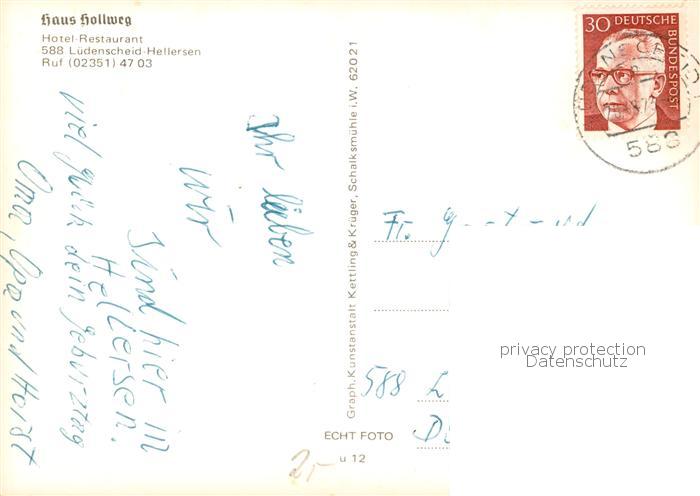 Haus Hollweg
Hotel-Restaurant
588 Lüdenscheid-Hellersen
Ruf (02351) 47 03
Ihr lieben
wir
sind hier in
Hellersen.
viel glück dein Geburztag
Oma, Opa und Horst
Graph. Kunstanstalt Kettling & Krüger, Schalksmühle i.W. 62021
30 DEUTSCHE
BUNDESPOST
588
Fr.
privacy protection
Datenschutz
588 L
ECHT FOTO
u 12
2,-